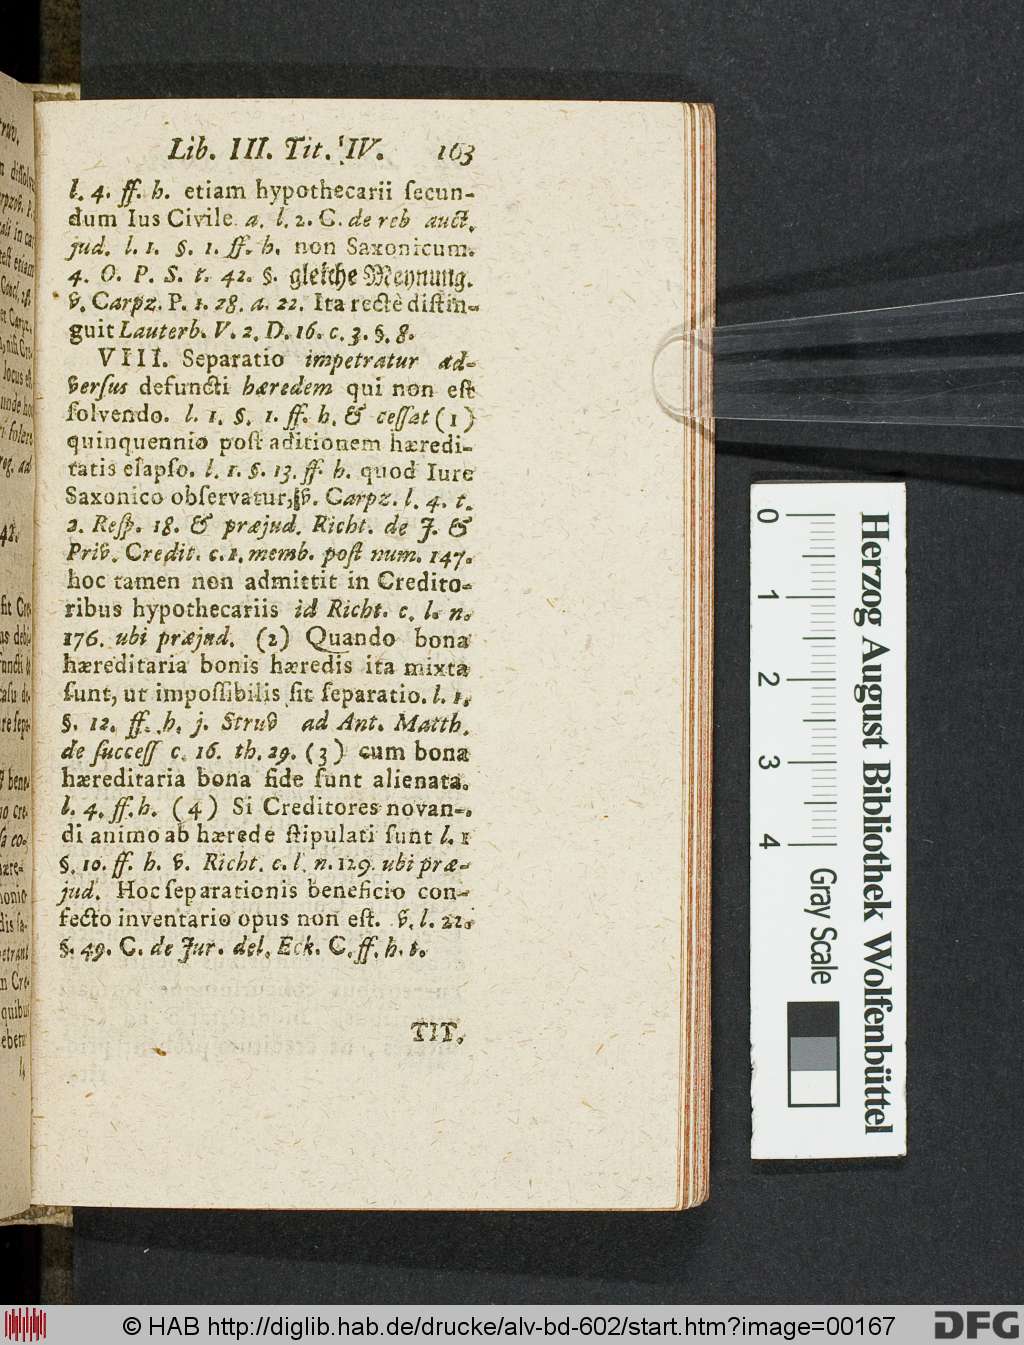 Lib. III. Tit. IV. 163
l. 4. ff. h. etiam hypothecarii ſecun-
dum Ius Civile a. l. 2. C. de reb auct.
jud. l. 1. §. 1. ff. h. non Saxonicum.
4. O. P. S. t. 42. §. gleiche Meynung.
v. Carpz. P. 1. 28. a. 22. Ita rectè diſtin-
guit Lauterb. V. 2. D. 16. c. 3. §. 8.
VIII. Separatio impetratur ad-
verſus defuncti hæredem qui non eſt
ſolvendo. l. 1. §. 1. ff. h. & ceſſat (1)
quinquennio poſt aditionem hæredi-
tatis elapſo. l. 1. §. 13. ff h. quod Iure
Saxonico obſervatur, v. Carpz. l. 4. t.
2. Reſp. 18. & præjud. Richt. de J. &
Priv. Credit. c. 1. memb. poſt num. 147.
hoc tamen non admittit in Credito-
ribus hypothecariis id Richt. c. l. n.
176. ubi præjud. (2) Quando bona
hæreditaria bonis hæredis ita mixta
ſunt, ut impoſſibilis ſit ſeparatio. l. 1.
§. 12. ff. h. j. Struv ad Ant. Matth.
de ſucceſſ c. 16. th. 29. (3) cum bona
hæreditaria bona fide ſunt alienata.
l. 4. ff. h. (4) Si Creditores novan-
di animo ab hærede ſtipulati ſunt l. 1
§. 10. ff. h. v. Richt. c. l. n. 129. ubi præ-
jud. Hoc ſeparationis beneficio con-
fecto inventario opus non eſt. v. l. 22.
§. 49. C. de Jur. del. Eck. C. ff. h. t.
TIT.
0 1 2 3 4 Gray Scale
Herzog August Bibliothek Wolfenbüttel
© HAB http://diglib.hab.de/drucke/alv-bd-602/start.htm?image=00167
DFG